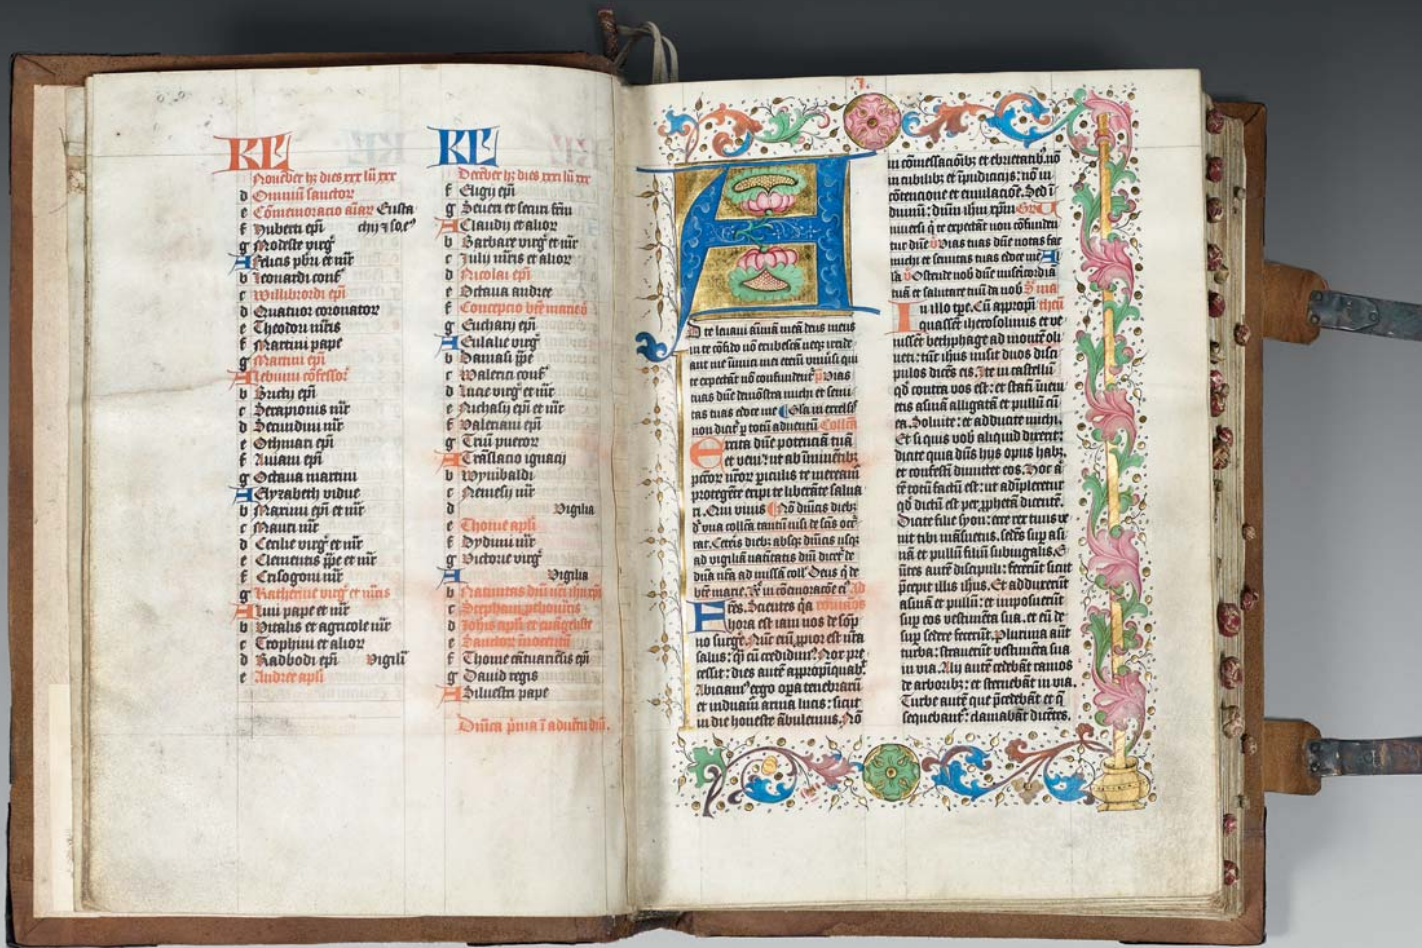 KL
Nouēber hȝ dies xxx lū xxx
d Omniū sanctoꝝ
e Cōmemoracio aīaꝝ Eusta
f Huberti ep̄i chij ⁊ so.eꝰ
g Modeste virgͥ
A Felicis pb̄ri et mr̄
b Leonardi conf
c Willibrordi ep̄i
d Quatuor coronatoꝝ
e Theodori mr̄is
f Martini pape
g Martini ep̄i
A Lebuini cōfessoꝝ
b Brictij ep̄i
c Serapionis mr̄
d Secundini mr̄
e Othmari ep̄i
f Aniani ep̄i
g Octaua martini
A Elyzabeth vidue
b Maximi ep̄i et mr̄
c Mauri mr̄
d Cecilie virgͥ et mr̄
e Clementis pp̄e et mr̄
f Crisogoni mr̄
g Katherine virgͥ et mr̄is
A Lini pape et mr̄
b Vitalis et agricole mr̄
c Trophimi et alioꝝ
d Radbodi ep̄i Vigil̄
e Andree apl̄i
KL
Decēber hȝ dies xxxi lū xxx
f Eligij ep̄i
g Seueri et securi fr̄m
A Claudij et alioꝝ
b Barbare virgͥ et mr̄
c Julij mr̄is et alioꝝ
d Nicolai ep̄i
e Octaua andree
f Concepcio bt̄e marie
g Eucharij ep̄i
A Eulalie virgͥ
b Damasi pp̄e
c Walerici conf
d Lucie virgͥ et mr̄
e Nichasij ep̄i et mr̄
f Valeriani ep̄i
g Triū pueroꝝ
A Trāslacio ignacij
b Wynibaldi
c Nemesij mr̄
d Vigilia
e Thome apl̄i
f Dydimi mr̄
g Victorie virgͥ
A Vigilia
b Natiuitas dn̄i nr̄i ihū xp̄i
c Stephani ꝓthom̄ris
d Joh̄is apl̄i et ewāgeliste
e Sanctoꝝ īnocentū
f Thome cātuariēsis ep̄i
g Dauid regis
A Siluestri pape
Dn̄ica p̄ma ī aduētu dn̄i.
A
D te leuaui aīmā meā deus meus
in te cōfido nō erubescā neqȝ irride
ant me inimici mei etem̄ vniūsi qui
te expectāt nō confundētͬ p̄ Vias
tuas dn̄e demōstra michi et semi
tas tuas edoce me Glā in excelsͥ
non dicitͬ ꝑ totū aduentū Collcā
Excita dn̄e potenciā tuā
et veni: ut ab īminētibȝ
pctōꝝ nr̄oꝝ ꝑiculis te meream̄
protegēte eripi te liberāte salua
ri. Qui viuis Nō dn̄icis diebȝ
d vna collcā tantū nisi de scīs occͬ
rat. Ceteris diebȝ absqȝ dn̄icis usqȝ
ad vigiliā natiuitatis dn̄i dicetͬ de
dn̄a nr̄a ad missā coll Deus q̄ de
bt̄e marie. Et in cōmemoracōe eiꝰ Ad
romanos
Fr̄es. Scientes q̄a
hora est iam nos de sop̄
no surge᷑. Nūc em̄ ꝓpior est nr̄a
salus: q̄ cū credidimꝰ Nox pre
cessit: dies autē appropīquabͭ.
Abiciamꝰ ergo oꝑa tenebraꝝ
et induam̄ arma lucis: sicut
in die honeste ābulemus. Nō
in cōmessacōibȝ et ebrietatibȝ. nō
in cubilibȝ et īpudicicijs: nō in
cōtencione et emulacōe. Sed ī
duimī: dn̄m ihm̄ xp̄m Gͬ V
niuersi q̄ te expectāt non cōfunden
tur dn̄e v̄ Vias tuas dn̄e notas fac
michi et semitas tuas edoce me Al
la v̄ Ostende nob̄ dn̄e misericordiā
tuā et salutare tuū da nob̄ S̄ ma
theū
In illo tꝑe. Cū appropī
quasset iherosolimis et ve
nisset bethphage ad montē oli
ueti: tūc ihūs misit duos disci
pulos dicēs eis. Ite in castellū
qd̄ contra vos est: et statī inueni
etis asinā alligatā et pullū cū
ea. Soluite: et adducite michi.
Et si quis vob̄ aliquid dixerit:
dicite quia dn̄s hijs opus habȝ.
et confestī dimittet eos. Hoc a᷑
tē totū factū est: ut adīpleretͬ
qd̄ dictū est per ꝓphetā dicentē.
Dicite filie syon: ecce rex tuus ve
nit tibi māsuetus. sedēs suꝑ asi
nā et pullū filiū subiugalis. E
ūtes autē discipuli: fecerūt sicut
p̄cepit illis ihūs. Et adduxerūt
asinā et pullū: et imposuerūt
suꝑ eos vestimēta sua. et eū de
suꝑ sedere fecerūt. Plurima aūt
turba: strauerūt vestimēta sua
in via. Alij autē cedebāt ramos
de arboribȝ: et sternebāt in via.
Turbe autē que p̄cedebāt et q̄
sequebanͬ: clamabāt dicētes.